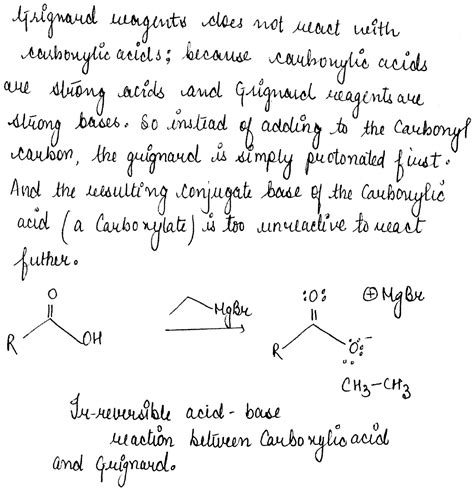 Grignard reagents does not react with
carboxylic acids; because carboxylic acids
are strong acids and Grignard reagents are
strong bases. So instead of adding to the Carbonyl
carbon, the grignard is simply protonated first.
And the resulting conjugate base of the Carboxylic
acid (a Carboxylate) is too unreactive to react
futher.
O
R OH
MgBr
:O:
R O:⁻
⊕MgBr
CH3-CH3
Ir-reversible acid-base
reaction between Carboxylic acid
and Grignard.